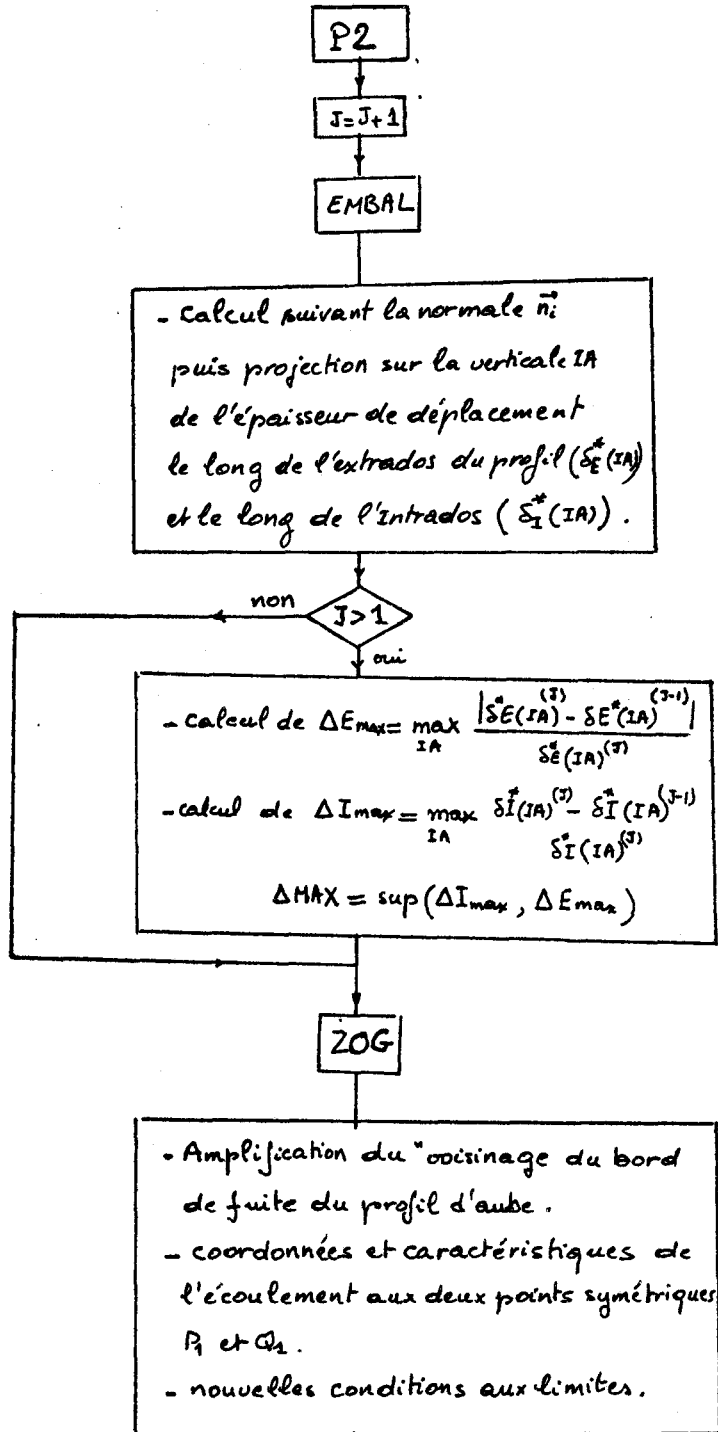 P2
J=J+1
EMBAL
- calcul suivant la normale n⃗i
puis projection sur la verticale IA
de l'épaisseur de déplacement
le long de l'extrados du profil (δ*E (IA))
et le long de l'Intrados (δ*I (IA)).
non
J>1
oui
- calcul de ΔEmax = max IA |δ*E(IA)^(J) - δE*(IA)^(J-1)| / δ*E(IA)^(J)
- calcul de ΔImax = max IA δ*I(IA)^(J) - δ*I(IA)^(J-1) / δ*I(IA)^(J)
ΔMAX = sup(ΔImax, ΔEmax)
ZOG
- Amplification du "voisinage du bord
de fuite du profil d'aube.
- coordonnées et caractéristiques de
l'écoulement aux deux points symétriques
P1 et Q1.
- nouvelles conditions aux limites.